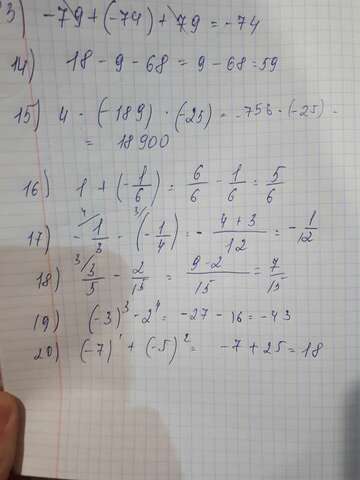 3) -79 + (-74) + 79 = -74
14) 18 - 9 - 68 = 9 - 68 = 59
15) 4 · (-189) · (-25) = -756 · (-25) =
= 18900
16) 1 + (-1/6) = 6/6 - 1/6 = 5/6
17) 4/ -1/3 - 3/ (-1/4) = - 4+3/12 = -1/12
18) 3/ 3/5 - 2/15 = 9-2/15 = 7/15
19) (-3)³ - 2⁴ = -27 - 16 = -43
20) (-7)¹ + (-5)² = -7 + 25 = 18